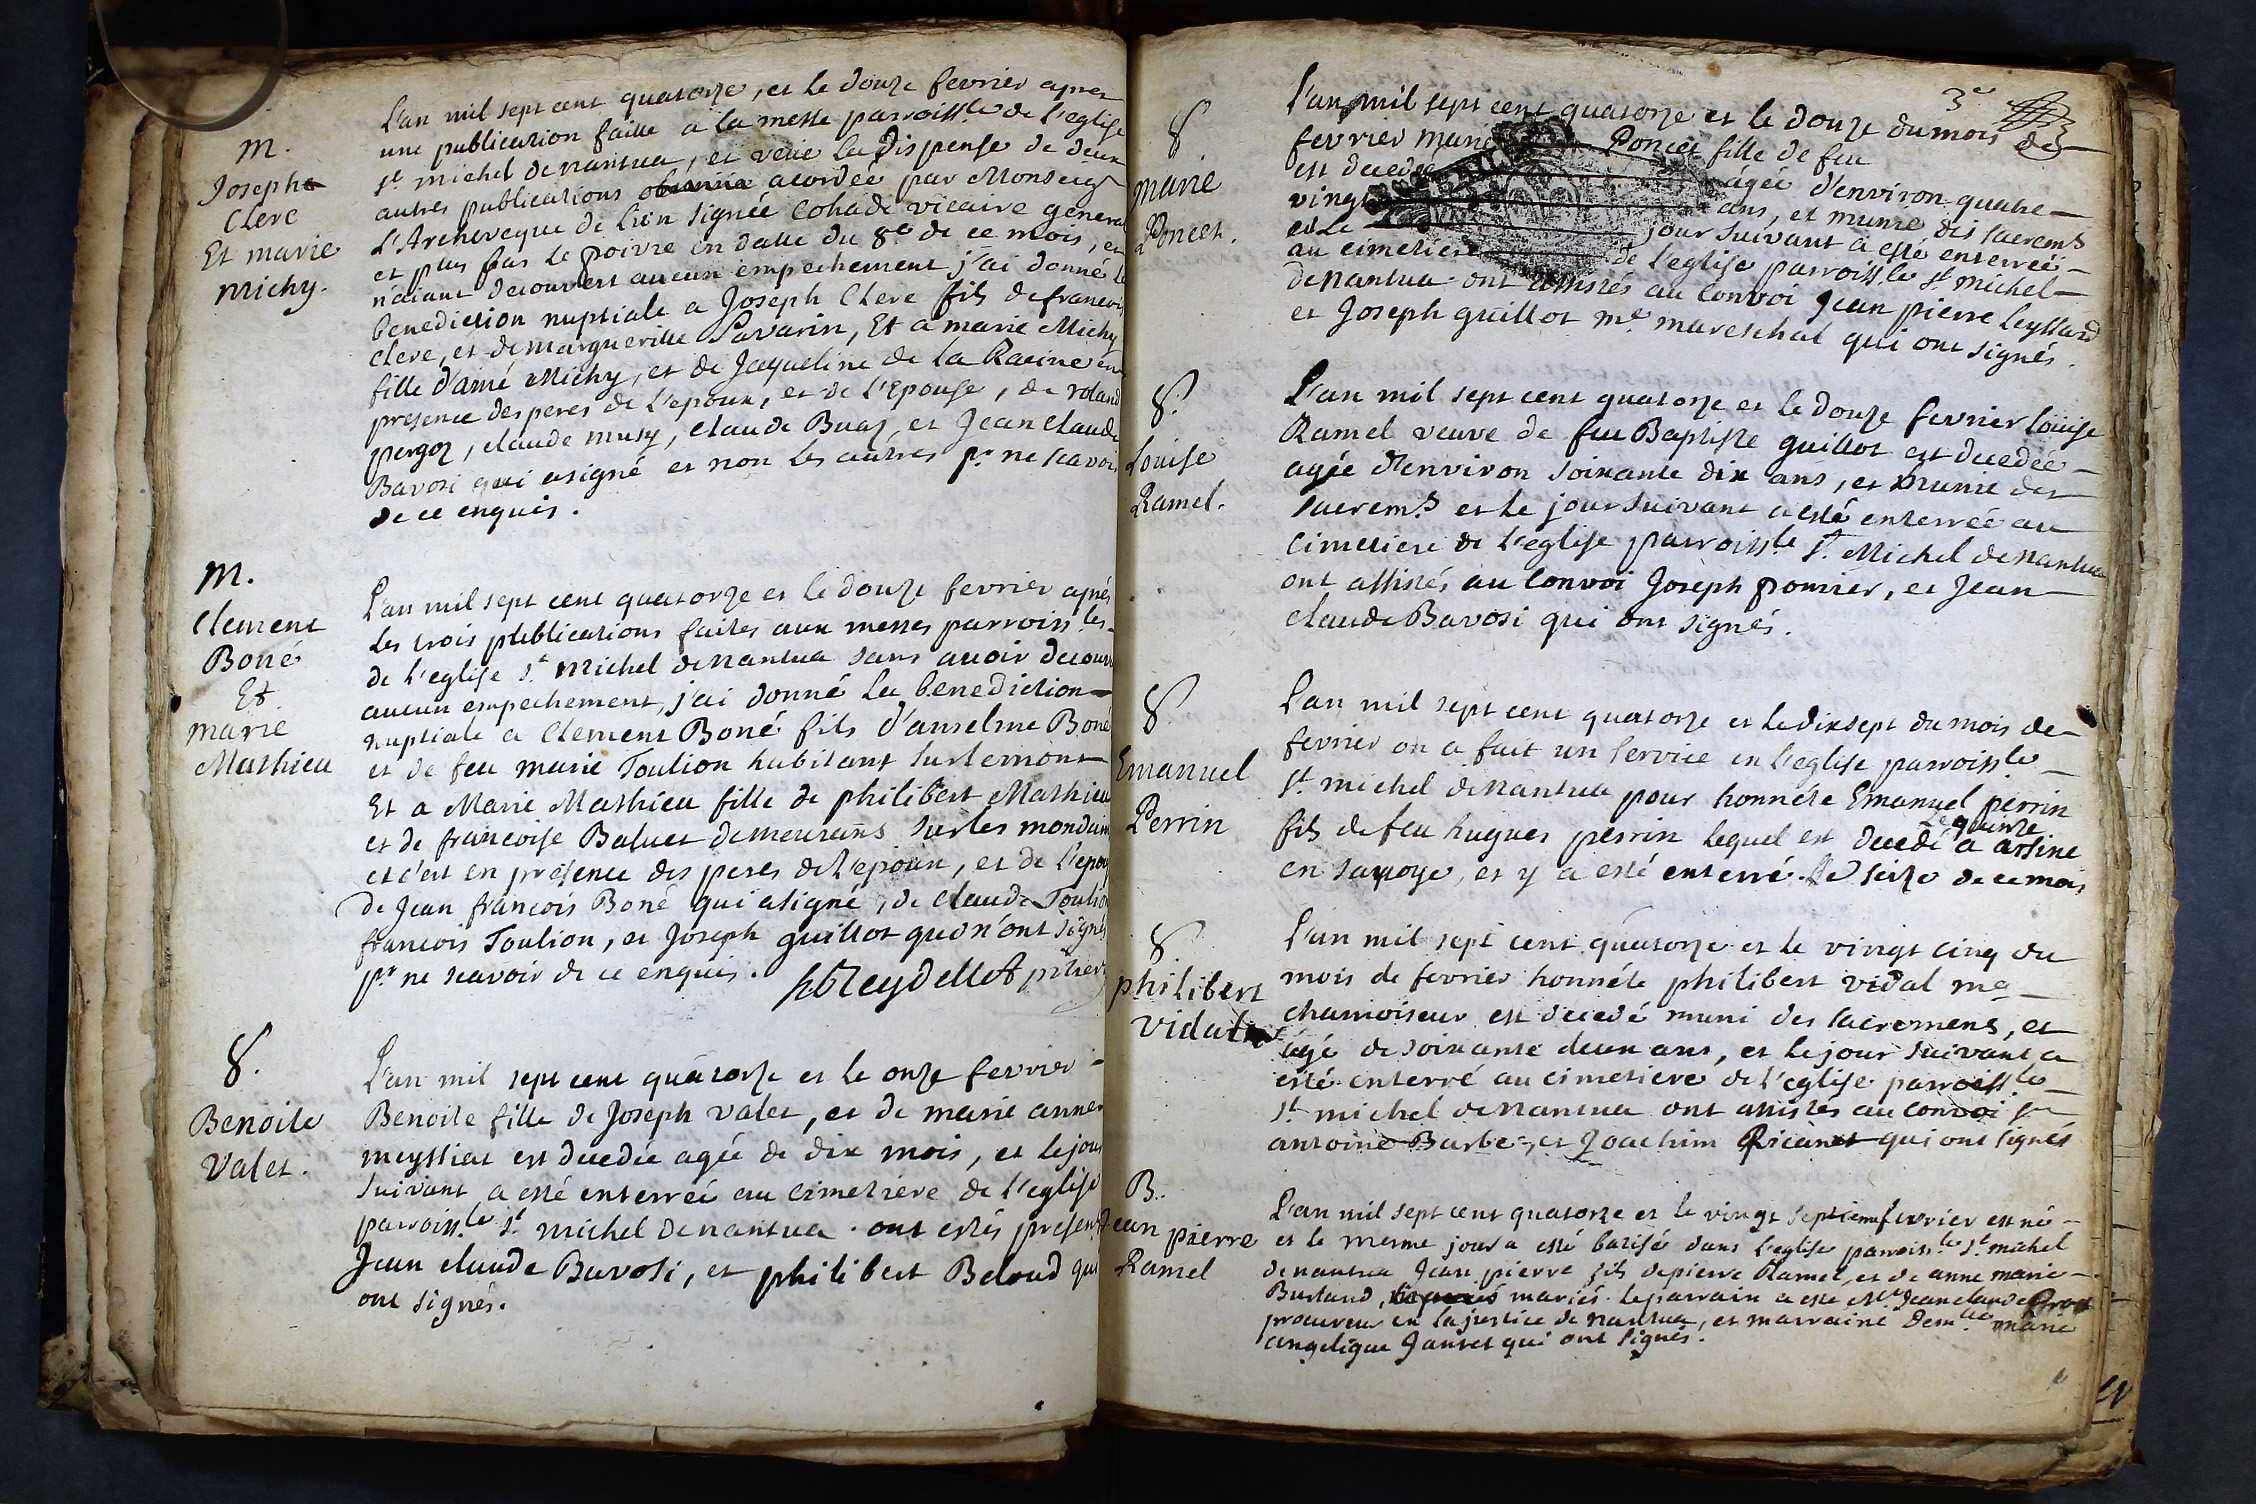 M.
Joseph
Clere
Et marie
michy.
L'an mil sept cent quatorze, et le douze fevrier apres
une publication faitte a la messe parroissle de l'eglise
st michel de nantua, et veüe la dispense de deux
autres publications acordée par Monseigr
L'Archeveque de Lion signée Cohade vicaire general
et plus bas le poivre en datte du 8e de ce mois, et
n'aiant decouvert aucun empechement j'ai donné la
benediction nuptiale a Joseph Clere fils de francois
Clere, et de margueritte Savarin, Et a marie Michy
fille d'aimé Michy, et de Jaqueline de la Racine en
presence des peres de L'epoux, et de l'Epouse, de roland
pergoz, claude musy, claude Buaz, et Jean claude
Bavosi qui a signé et non les autres pr ne scavoir
de ce enquis.
M.
Clement
Boné
Et
marie
Mathieu
L'an mil sept cent quatorze et le douze fevrier aprés
les trois publications faites aux messes parroissles
de l'eglise st Michel de nantua sans avoir decouvert
aucun empechement, j'ai donné la benediction
nuptiale a Clement Boné fils d'anselme Boné
et de feu marie Toulion habitant sur le mont
Et a Marie Mathieu fille de philibert Mathieu
et de francoise Baluet demeurans sur les
et c'est en présence des peres de l'epoux, et de l'epouse
de Jean francois Boné qui a signé, de claude Toulion
francois Toulion, et Joseph guillot qui n'ont signés
pr ne scavoir de ce enquis. Reydellet
8.
Benoite
Valet.
L'an mil sept cent quatorze et le onze fevrier
Benoite fille de Joseph valet, et de marie anne
meyssiat est decedée agée de dix mois, et le jour
suivant a esté enterreé au cimetiere de l'eglise
parroissle st michel de nantua. ont estés presents
Jean claude Bavosi, et philibert Beloud qui
ont signés.
3e
8.
marie
Poncet.
L'an mil sept cent quatorze et le douze du mois de
fevrier marie Poncet fille de feu
est decedée agée d'environ quatre
vingt ans, et munie des sacrems
et le jour suivant a esté enterreé
au cimetiere de l'eglise parroissle st michel
de nantua. ont assistés au convoi Jean pierre Leyssard
et Joseph guillot me mareschal qui ont signés.
8.
Louise
Ramel.
L'an mil sept cent quatorze et le douze fevrier Loüise
Ramel veuve de feu Baptiste guillot est decedée
agée d'environ soixante dix ans, et munie des
sacrems et le jour suivant a esté enterreé au
Cimetiere de l'eglise parroissle st Michel de nantua
ont assistés au convoi Joseph pomier, et Jean
claude Bavosi qui ont signés.
8.
Emanuel
Perrin
L'an mil sept cent quatorze et le dixsept du mois de
fevrier on a fait un service en l'eglise parroissle
st michel de nantua pour honnéte Emanuel perrin
fils de feu hugues perrin lequel est decedé le quinze a arsine
en savoye, et y a esté enterré le seize de ce mois
8.
philibert
vidal
L'an mil sept cent quatorze et le vingt cinq du
mois de fevrier honnéte philibert vidal me
chamoiseur est decedé muni des sacremens, et
agé de soixante deux ans, et le jour suivant a
esté enterré au cimetiere de l'eglise parroissle
st michel de nantua ont assistés au convoi sr
antoine Barbe, et Joachim qui ont signés
B.
Jean pierre
Ramel
L'an mil sept cent quatorze et le vingt septiem fevrier est né
et le mesme jour a esté batisé dans l'eglise parroissle st michel
de nantua Jean pierre fils de pierre Ramel, et de anne marie
Burland, mariés. le parrain a esté Me Jean claude
procureur en la justice de nantua, et marraine demlle marie
angelique Jantet qui ont signés.